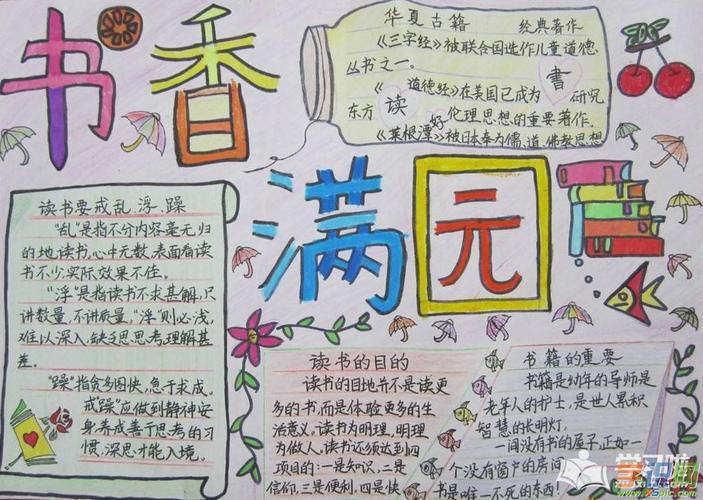 书香满园
华夏古籍 经典著作
《三字经》被联合国选作儿童道德
丛书之一。
《道德经》在美国已成为 書 研究
东方 读 好 伦理思想的重要著作。
《菜根潭》被日本奉为儒、道、佛教思想
读书要戒乱、浮、躁
“乱”是指不分内容毫无归
的地读书,心中无数,表面看读
书不少,实际效果不住。
“浮”是指读书不求甚解,只
讲数量,不讲质量,“浮”则必浅,
难以深入,缺乏思思考,理解甚
差。
“躁”指贪多图快,急于求成。
戒躁”应做到静神安
身养成善于思考的习
惯,深思才能入境。
读书的目的
读书的目地并不是读更
多的书,而是体验更多的生
活意义。读书为明理,明理
为做人。读书还须达到四
项目的:一是知识,二是
信仰,三是便利,四是快
书籍的重要
书籍是幼年的导师是
老年人的护士,是世人累积
智慧的长明灯。
一间没有书的屋子,正如一
个没有窗户的房间
书是唯一不死的东西!